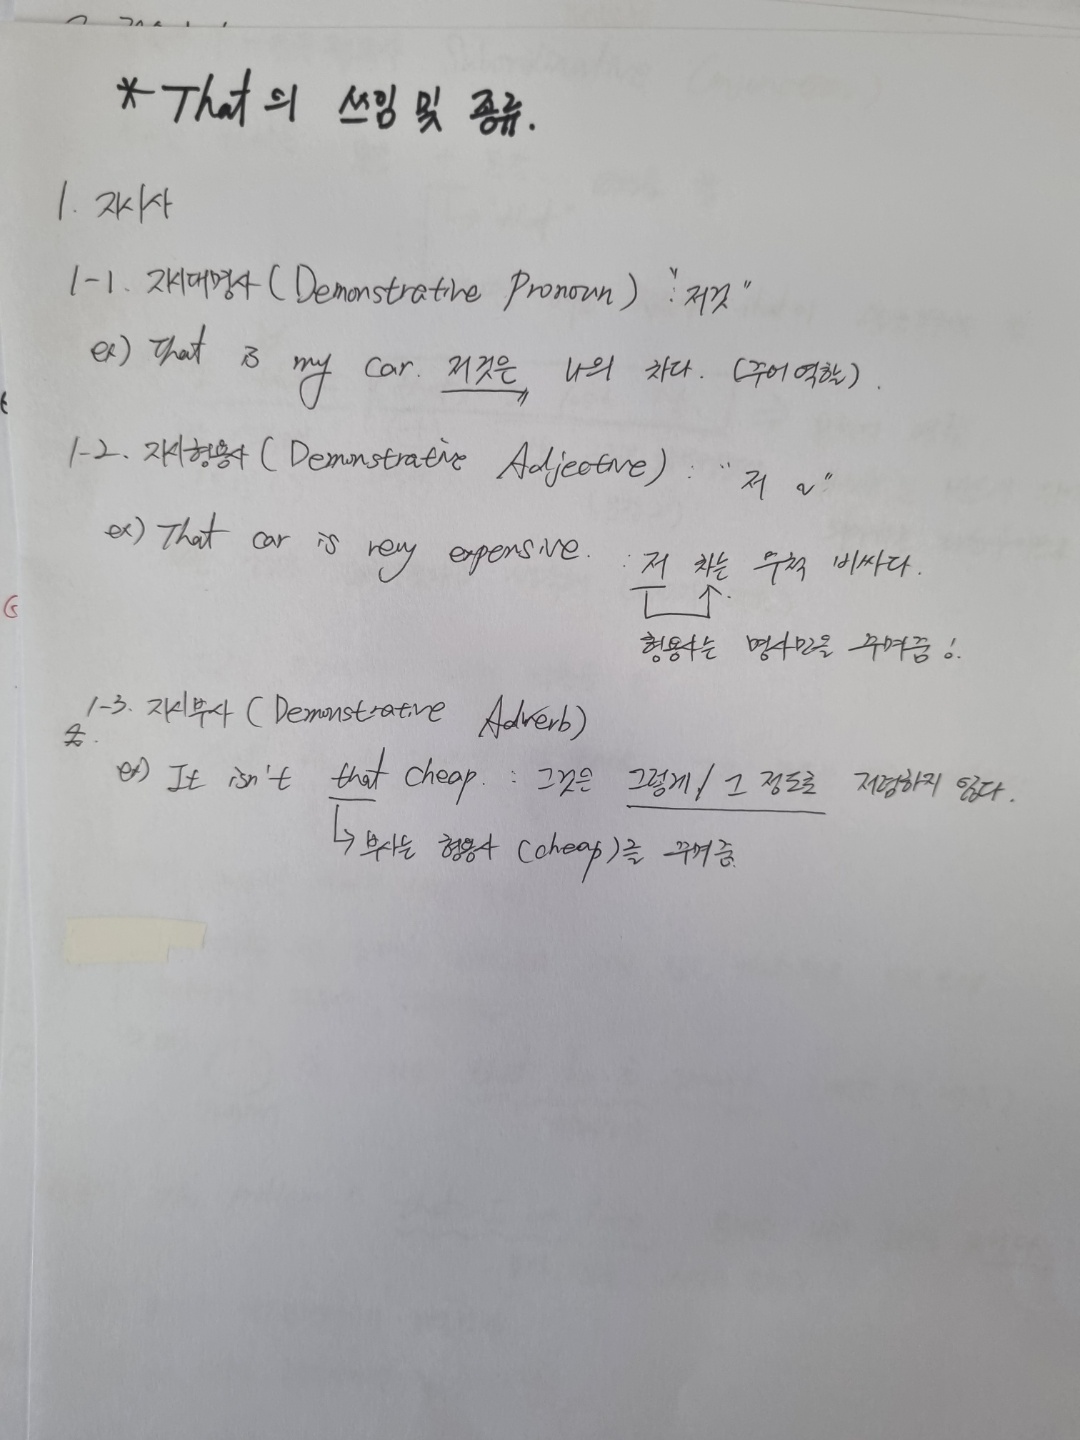 * That의 쓰임 및 종류.
1. 지시사
1-1. 지시대명사 (Demonstrative Pronoun) : "저것"
ex) That is my car. 저것은 나의 차다. (주어 역할).
1-2. 지시형용사 (Demonstrative Adjective) : "저 ~"
ex) That car is very expensive. : 저 차는 무척 비싸다.
형용사는 명사만을 꾸며줌!.
1-3. 지시부사 (Demonstrative Adverb)
ex) It isn't that cheap. : 그것은 그렇게/그 정도로 저렴하지 않다.
↳ 부사는 형용사 (cheap)를 꾸며줌.